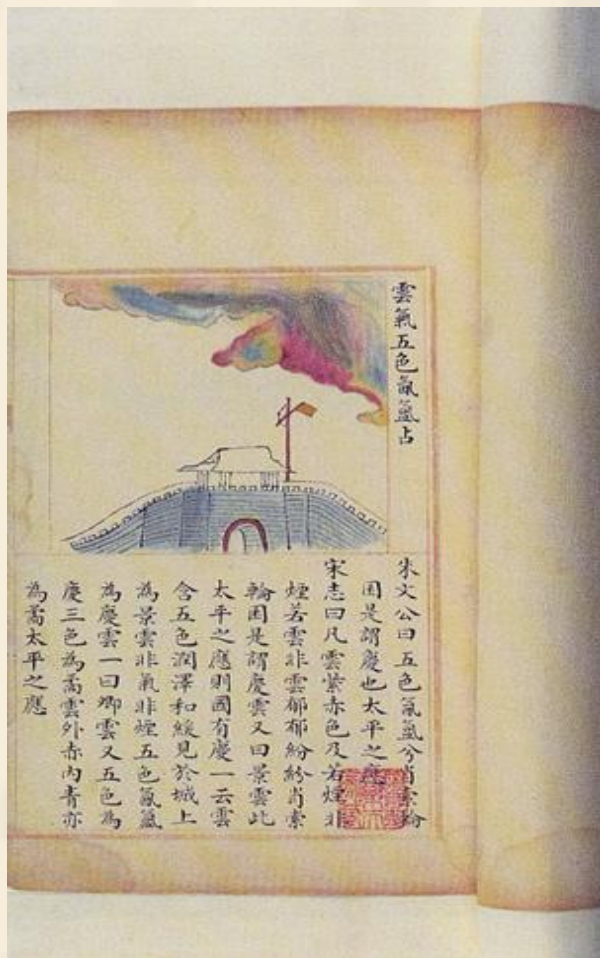 雲氣五色氤氳占
朱文公曰五色氤氳兮肖索輪
囷是謂慶也太平之應
宋志曰凡雲紫赤色及若煙非
煙若雲非雲郁郁紛紛肖索
輪囷是謂慶雲又曰景雲此
太平之應則國有慶一云雲
含五色潤澤和緩見於城上
為景雲非氣非煙五色氤氳
為慶雲一曰卿雲又五色為
慶三色為矞雲外赤內青亦
為矞太平之應